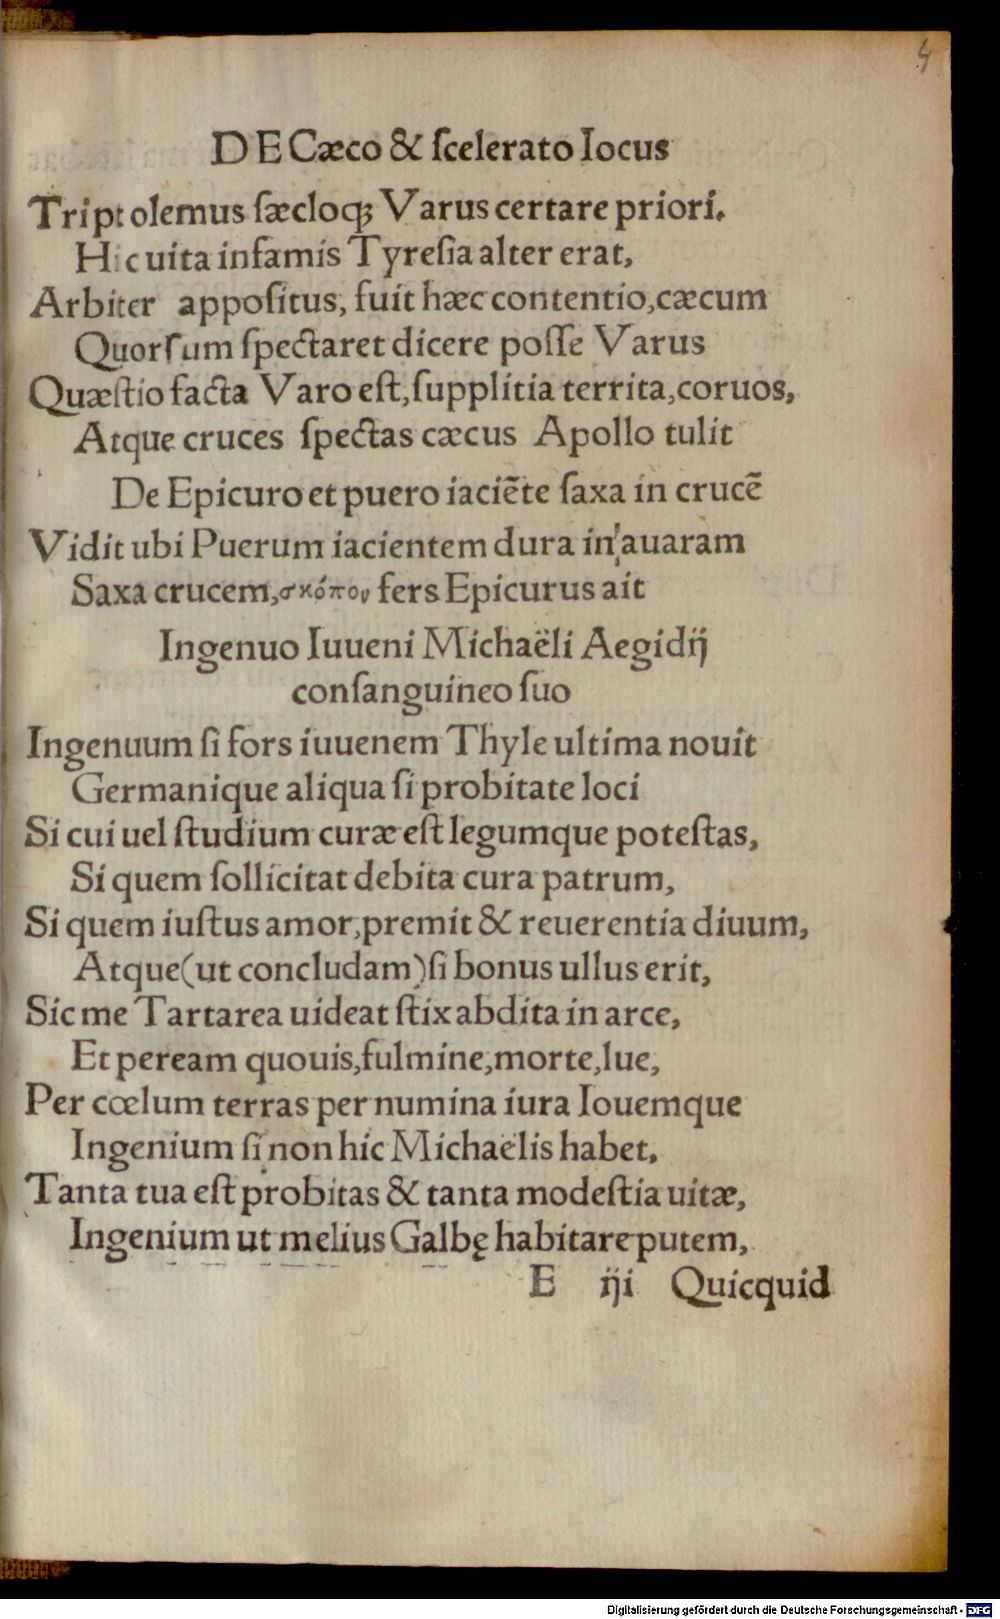 4
DE Cæco & ſcelerato Iocus
Triptolemus ſæcloqꝫ Varus certare priori.
Hic uita infamis Tyreſia alter erat,
Arbiter appoſitus, fuit hæc contentio,cæcum
Quorſum ſpectaret dicere poſſe Varus
Quæſtio facta Varo eſt,ſupplitia territa,coruos,
Atque cruces ſpectas cæcus Apollo tulit
De Epicuro et puero iaciēte ſaxa in crucē
Vidit ubi Puerum iacientem dura in auaram
Saxa crucem,σκόπου fers Epicurus ait
Ingenuo Iuueni Michaëli Aegidij
conſanguineo ſuo
Ingenuum ſi fors iuuenem Thyle ultima nouit
Germanique aliqua ſi probitate loci
Si cui uel ſtudium curæ eſt legumque poteſtas,
Si quem ſollicitat debita cura patrum,
Si quem iuſtus amor,premit & reuerentia diuum,
Atque(ut concludam)ſi bonus ullus erit,
Sic me Tartarea uideat ſtix abdita in arce,
Et peream quouis,fulmine,morte,lue,
Per cœlum terras per numina iura Iouemque
Ingenium ſi non hic Michaëlis habet.
Tanta tua eſt probitas & tanta modeſtia uitæ,
Ingenium ut melius Galbę habitare putem,
E iji Quicquid
Digitalisierung gefördert durch die Deutsche Forschungsgemeinschaft - DFG